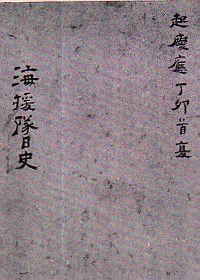 起慶應丁卯首夏
海援隊日史